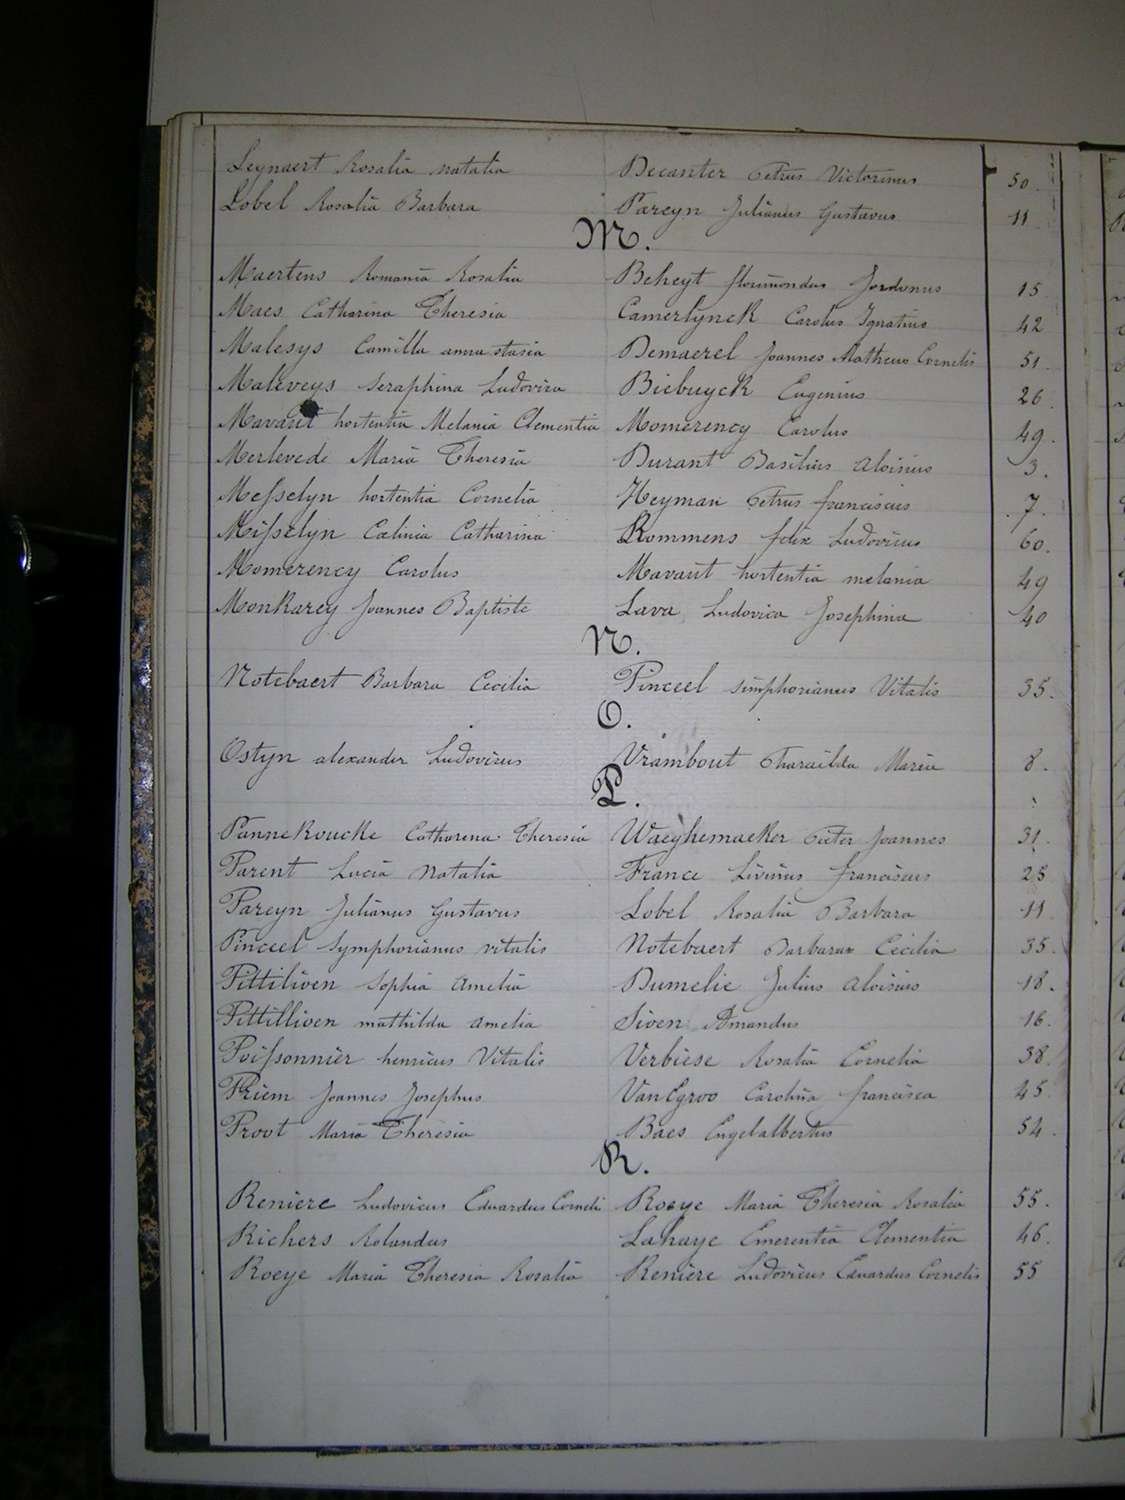 Leynaert Rosalia natalia Decanter Petrus Victorinus 50.
Lobel Rosalia Barbara Pareyn Julianus Gustavus 11
M.
Maertens Romania Rosalia Beheyt florimondus Jordonus 15
Maes Catharina Theresia Camerlynck Carolus Ignatius 42
Malesys Camilla annastasia Demaerel Joannes Matheus Cornelis 51.
Maleveys Seraphina Ludovica Biebuyck Eugenius 26.
Mavaut hortentia Melania Clementia Momerency Carolus 49.
Merlevede Maria Theresia Durant Basilius aloisius 3.
Messelyn hortentia Cornelia Heyman Petrus franciscus 7.
Misselyn Celinia Catharina Rommens felix Ludovicus 60.
Momerency Carolus Mavaut hortentia melania 49
Monkarey Joannes Baptiste Lava Ludovica Josephina 40
N.
Notebaert Barbara Cecilia Pinceel simphorianus Vitalis 35.
O.
Ostyn alexander Ludovicus Vrambout Tharailda Maria 8.
P.
Pannekoucke Catharena Theresia Waeghemaeker Pieter Joannes 31
Parent Lucia Natalia France Livinus franciscus 25
Pareyn Julianus Gustavus Lobel Rosalia Barbara 11
Pinceel Symphorianus vitalis Notebaert Barbara Cecilia 35.
Pittilioen Sophia Amelia Dumelie Julius aloisius 18.
Pittillioen mathilda amelia Sioen Amandus 16.
Poissonnier henricus Vitalis Verbiese Rosalia Cornelia 38.
Priem Joannes Josephus VanEgroo Carolina francisca 45.
Proot Maria Theresia Baes Engelalbertus 54.
R.
Reniere Ludovicus Eduardus Corneli Roeye Maria Theresia Rosalia 55.
Richers Rolandus Lahaye Emerentia Clementia 46.
Roeye Maria Theresia Rosalia Reniere Ludovicus Eduardus Cornelis 55